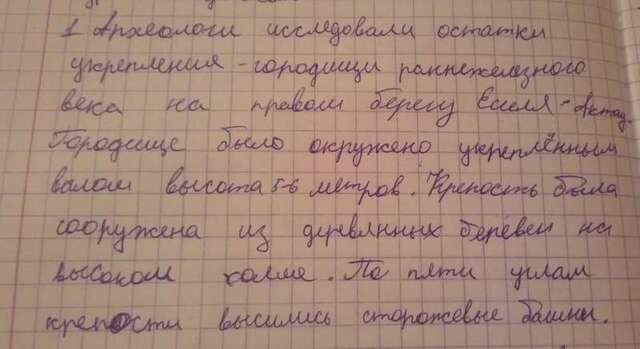 1 Археологи исследовали остатки
укрепления - городищи раннежелезного
века на правом берегу Есиля - Актау.
Городище было окружено укреплённым
валом высота 5-6 метров. Крепость была
сооружена из деревянных берёвен на
высоком холме. По пяти углам
крепости высились сторожевые башни.